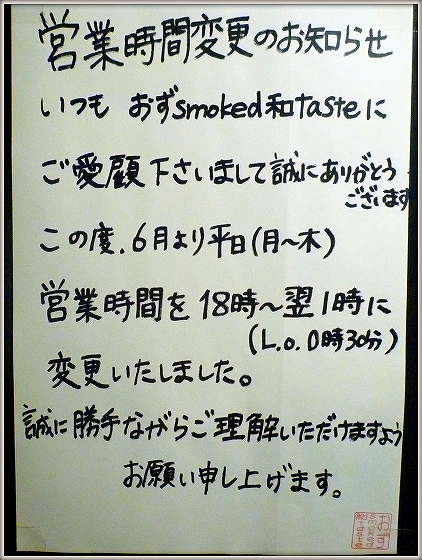 営業時間変更のお知らせ
いつも おずsmoked和tasteに
ご愛顧下さいまして誠にありがとう
ございます
この度、6月より平日(月～木)
営業時間を18時～翌1時に
(L.o.0時30分)
変更いたしました。
誠に勝手ながらご理解いただけますよう
お願い申し上げます。
おず
smoked
和taste